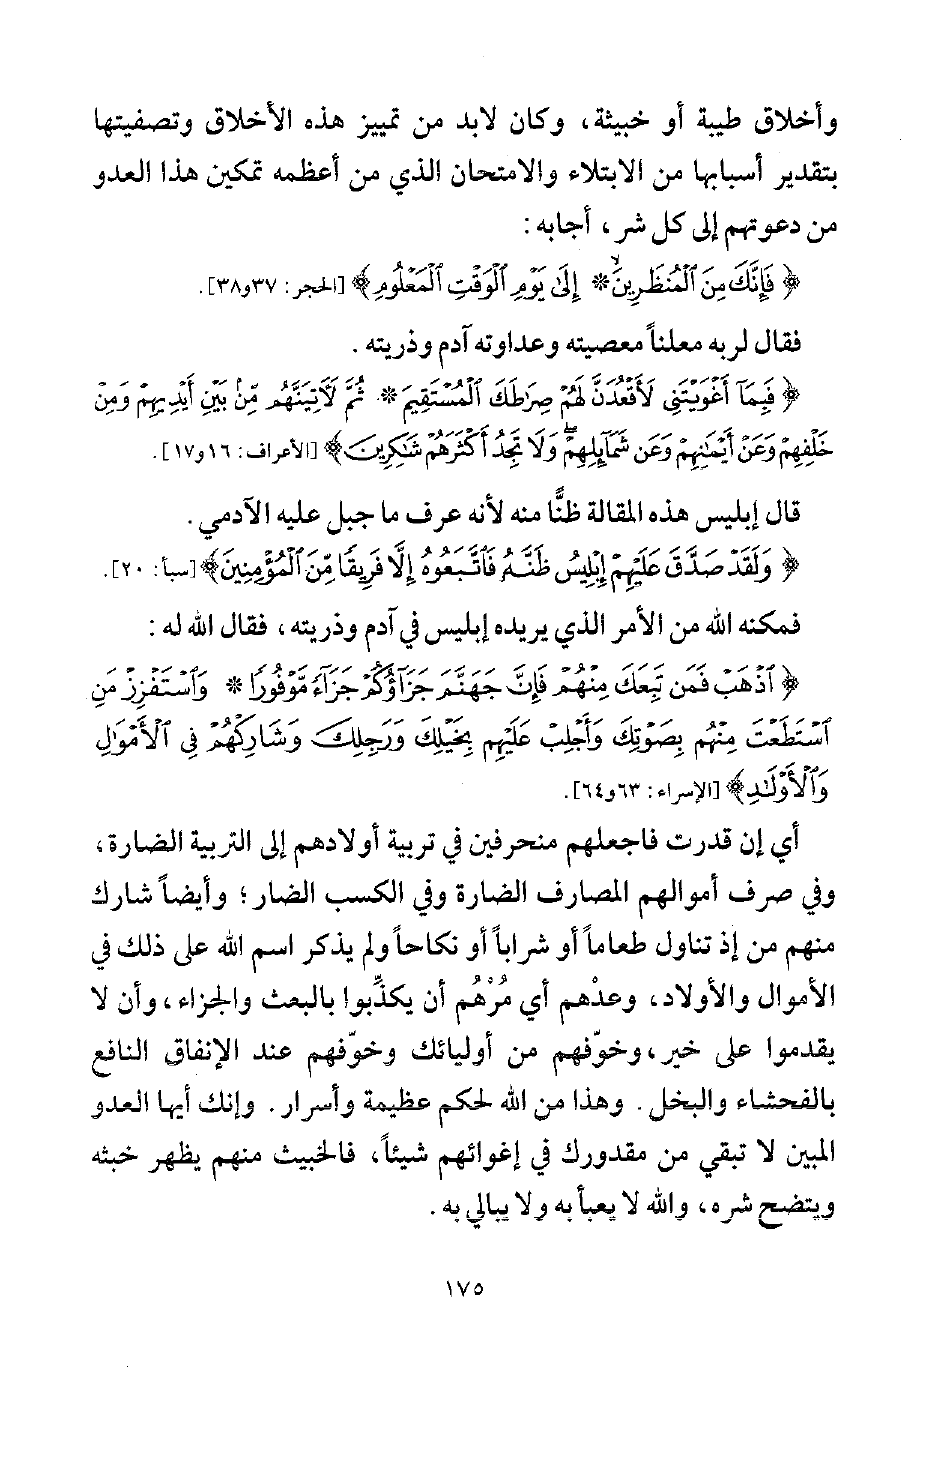 وأخلاق طيبة أو خبيثة، وكان لابد من تمييز هذه الأخلاق وتصفيتها
بتقدير أسبابها من الابتلاء والامتحان الذي من أعظمه تمكين هذا العدو
من دعوتهم إلى كل شر، أجابه:
﴿فَإِنَّكَ مِنَ ٱلْمُنظَرِينَ * إِلَىٰ يَوْمِ ٱلْوَقْتِ ٱلْمَعْلُومِ﴾ [الحجر: ٣٧و٣٨].
فقال لربه معلناً معصيته وعداوته آدم وذريته.
﴿فَبِمَآ أَغْوَيْتَنِى لَأَقْعُدَنَّ لَهُمْ صِرَٰطَكَ ٱلْمُسْتَقِيمَ * ثُمَّ لَءَاتِيَنَّهُم مِّنۢ بَيْنِ أَيْدِيهِمْ وَمِنْ
خَلْفِهِمْ وَعَنْ أَيْمَٰنِهِمْ وَعَن شَمَآئِلِهِمْ ۖ وَلَا تَجِدُ أَكْثَرَهُمْ شَٰكِرِينَ﴾ [الأعراف: ١٦و١٧].
قال إبليس هذه المقالة ظنًّا منه لأنه عرف ما جبل عليه الآدمي.
﴿وَلَقَدْ صَدَّقَ عَلَيْهِمْ إِبْلِيسُ ظَنَّهُۥ فَٱتَّبَعُوهُ إِلَّا فَرِيقًا مِّنَ ٱلْمُؤْمِنِينَ﴾ [سبأ: ٢٠].
فمكنه الله من الأمر الذي يريده إبليس في آدم وذريته، فقال الله له:
﴿ٱذْهَبْ فَمَن تَبِعَكَ مِنْهُمْ فَإِنَّ جَهَنَّمَ جَزَآؤُكُمْ جَزَآءً مَّوْفُورًا * وَٱسْتَفْزِزْ مَنِ
ٱسْتَطَعْتَ مِنْهُم بِصَوْتِكَ وَأَجْلِبْ عَلَيْهِم بِخَيْلِكَ وَرَجِلِكَ وَشَارِكْهُمْ فِى ٱلْأَمْوَٰلِ
وَٱلْأَوْلَٰدِ﴾ [الإسراء: ٦٣و٦٤].
أي إن قدرت فاجعلهم منحرفين في تربية أولادهم إلى التربية الضارة،
وفي صرف أموالهم المصارف الضارة وفي الكسب الضار؛ وأيضاً شارك
منهم من إذ تناول طعاماً أو شراباً أو نكاحاً ولم يذكر اسم الله على ذلك في
الأموال والأولاد، وعدْهم أي مُرْهُم أن يكذِّبوا بالبعث والجزاء، وأن لا
يقدموا على خير، وخوّفهم من أوليائك وخوّفهم عند الإنفاق النافع
بالفحشاء والبخل. وهذا من الله لحكم عظيمة وأسرار. وإنك أيها العدو
المبين لا تبقي من مقدورك في إغوائهم شيئاً، فالخبيث منهم يظهر خبثه
ويتضح شره، والله لا يعبأ به ولا يبالي به.
١٧٥